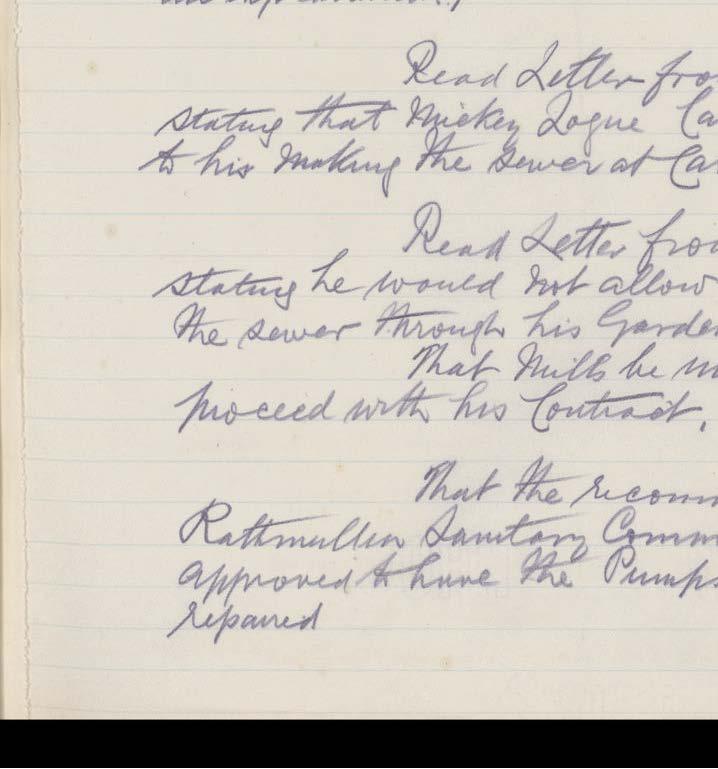 Read Letter fro
stating that Mickey Logue Ca
to his making the sewer at Car
Read Letter fro
stating he would not allow
the sewer through his Garde
That Mills be
proceed with his Contract.
That the recom
Rathmullen Sanitary Comm
approved to have the Pumps
repaired